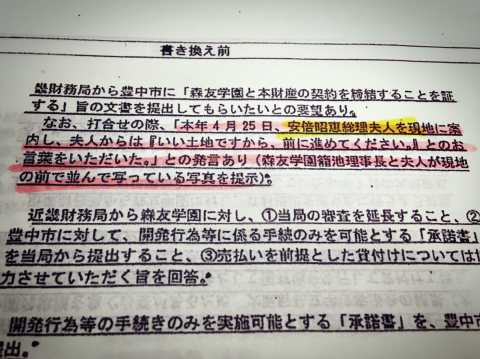 書き換え前
畿財務局から豊中市に「森友学園と本財産の契約を締結することを証
する」旨の文書を提出してもらいたいとの要望あり。
なお、打合せの際、「本年4月25日、安倍昭恵総理夫人を現地に案
内し、夫人からは『いい土地ですから、前に進めてください。』とのお
言葉をいただいた。」との発言あり（森友学園籠池理事長と夫人が現地
の前で並んで写っている写真を提示）。
近畿財務局から森友学園に対し、①当局の審査を延長すること、②
豊中市に対して、開発行為等に係る手続のみを可能とする「承諾書」
を当局から提出すること、③売払いを前提とした貸付けについては
力させていただく旨を回答。
開発行為等の手続きのみを実施可能とする「承諾書」を、豊中市
提出。